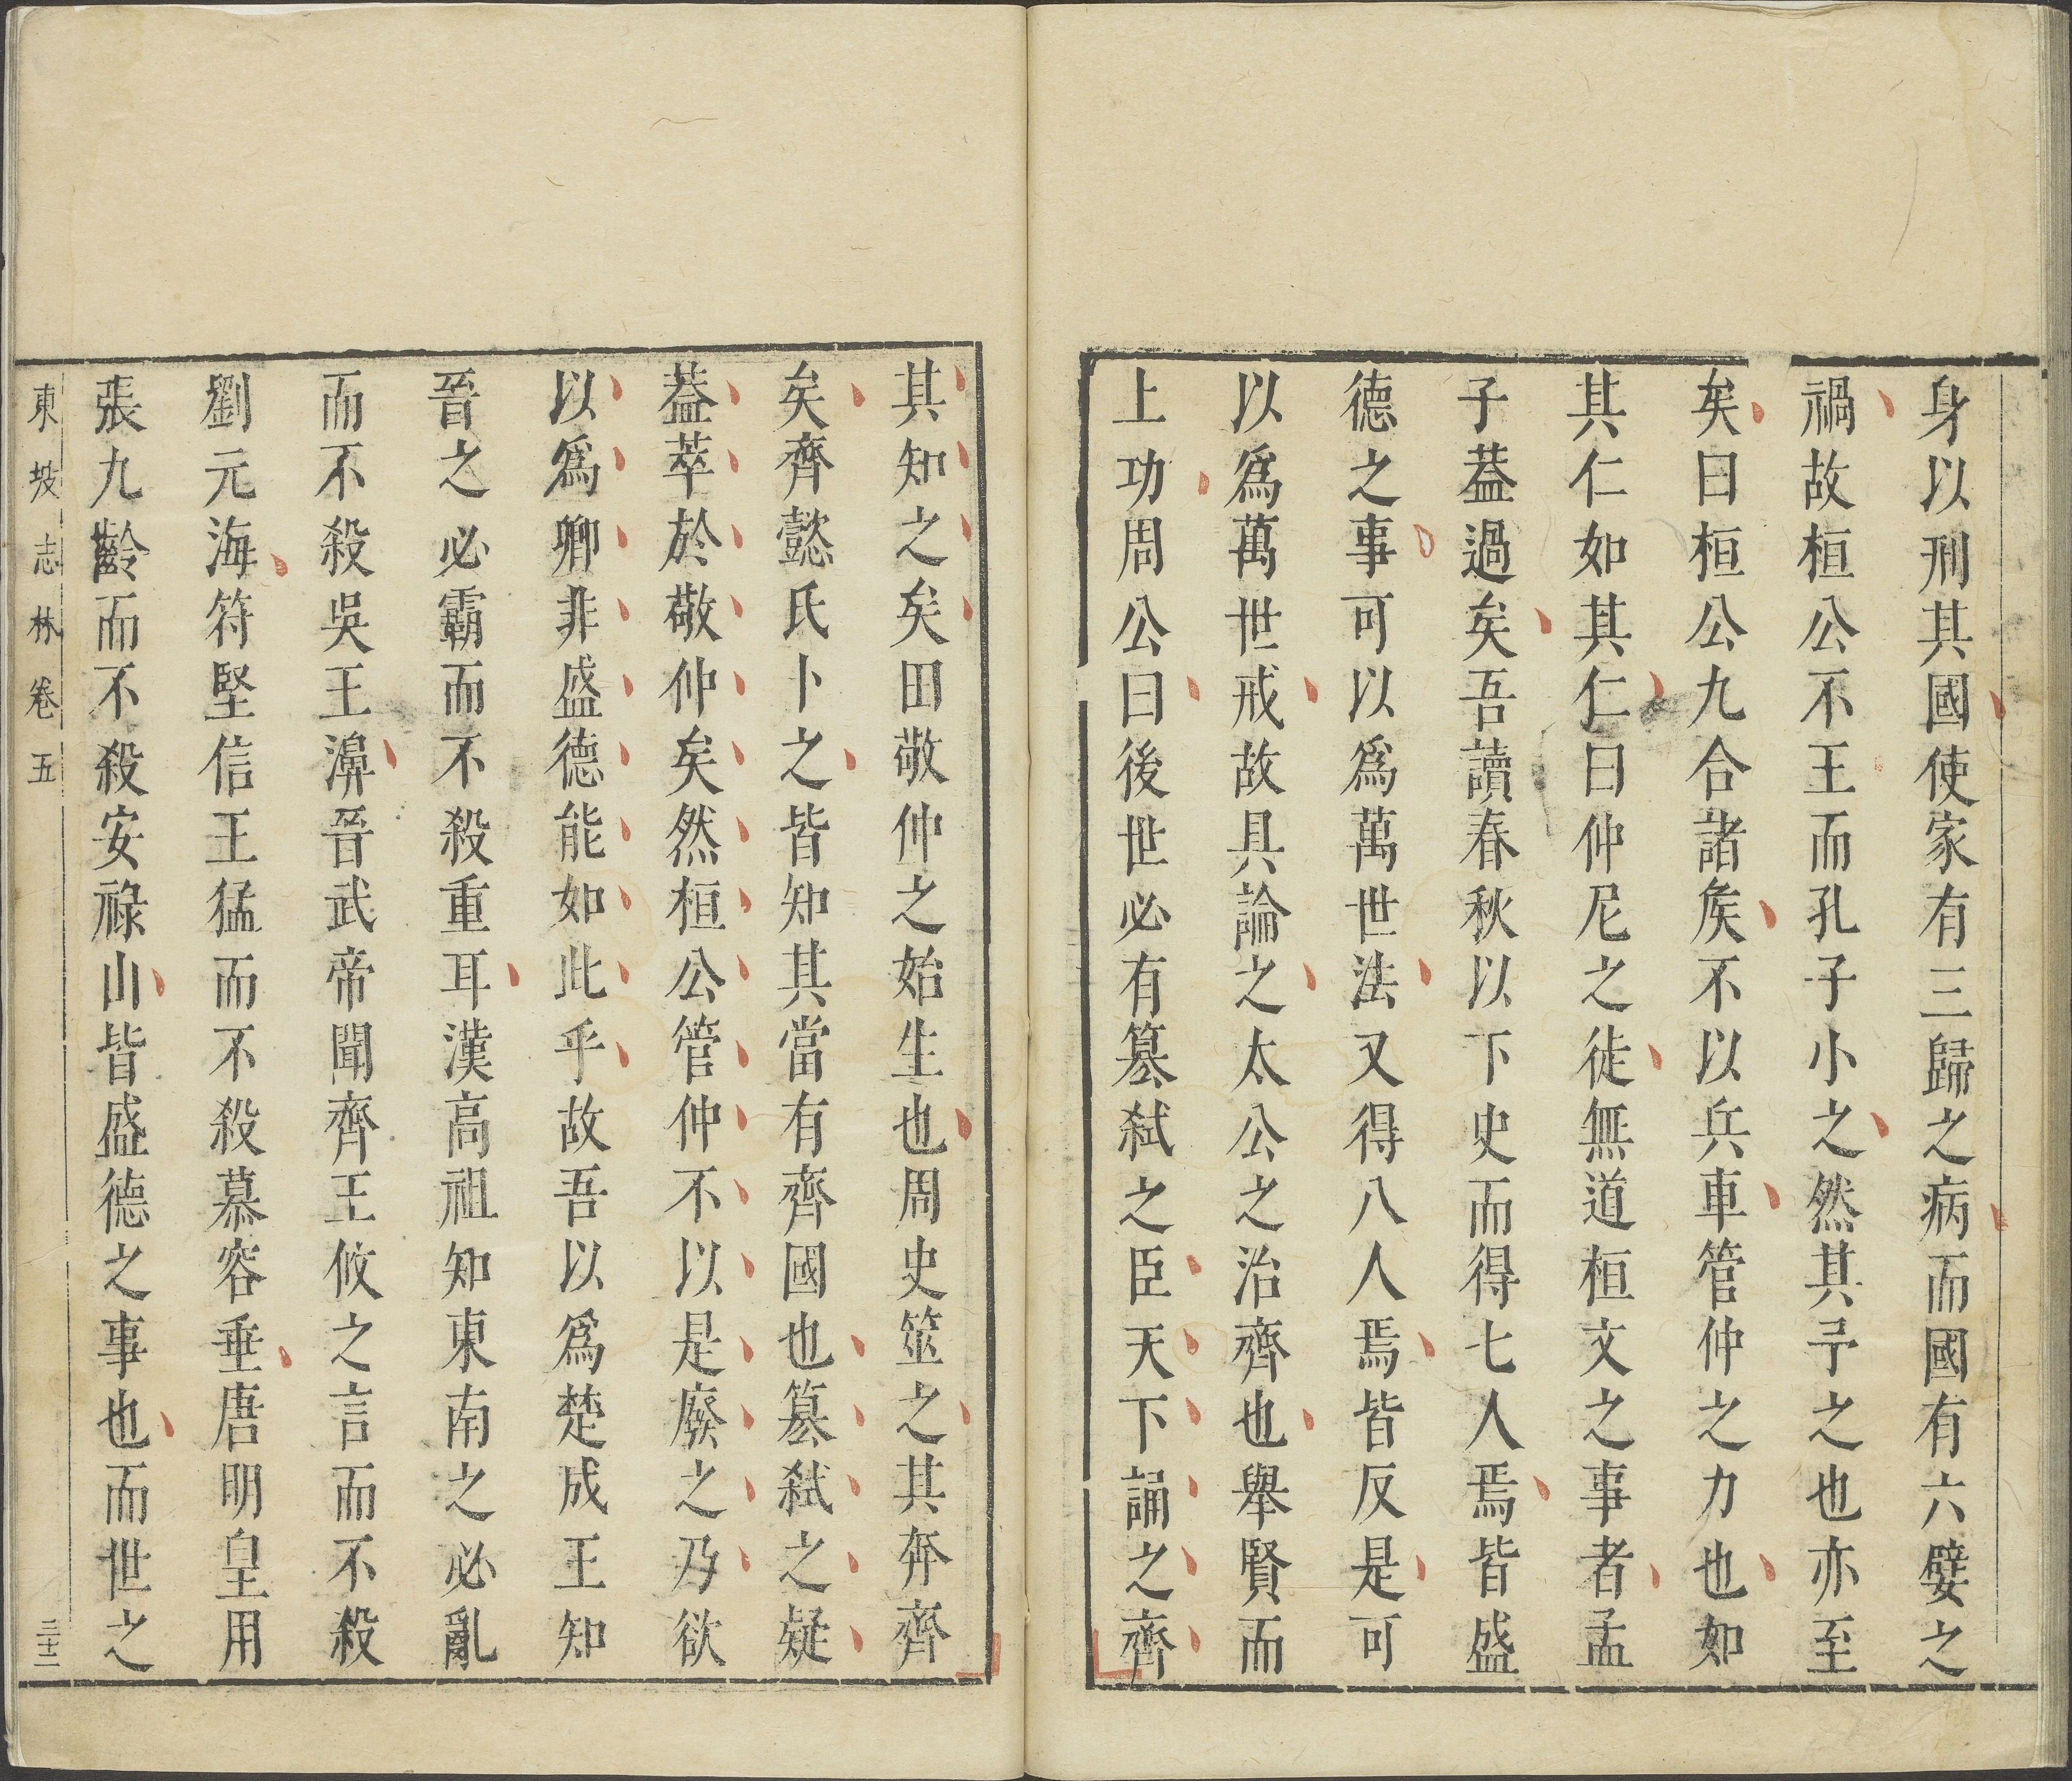 身以刑其國使家有三歸之病而國有六嬖之
禍故桓公不王而孔子小之然其予之也亦至
矣曰桓公九合諸矦不以兵車管仲之力也如
其仁如其仁曰仲尼之徒無道桓文之事者孟
子葢過矣吾讀春秋以下史而得七人焉皆盛
德之事可以爲萬世法又得八人焉皆反是可
以爲萬世戒故具論之太公之治齊也舉賢而
上功周公曰後世必有簒弑之臣天下誦之齊
其知之矣田敬仲之始生也周史筮之其奔齊
矣齊懿氏卜之皆知其當有齊國也簒弑之疑
葢萃於敬仲矣然桓公管仲不以是廢之乃欲
以爲卿非盛德能如此乎故吾以爲楚成王知
晉之必霸而不殺重耳漢高祖知東南之必亂
而不殺吳王濞晉武帝聞齊王攸之言而不殺
劉元海符堅信王猛而不殺慕容垂唐明皇用
張九齡而不殺安祿山皆盛德之事也而世之
東坡志林卷五
三十二